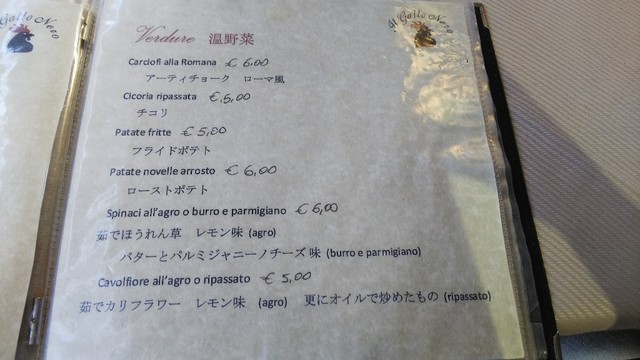 Il Gallo Nero
Verdure 温野菜
Carciofi alla Romana € 6,00
アーティチョーク ローマ風
Cicoria ripassata €,5,00
チコリ
Patate fritte € 5,00
フライドポテト
Patate novelle arrosto € 6,00
ローストポテト
Spinaci all'agro o burro e parmigiano € 6,00
茹でほうれん草 レモン味 (agro)
バターとパルミジャニーノチーズ 味 (burro e parmigiano)
Cavolfiore all'agro o ripassato € 5,00
茹でカリフラワー レモン味 (agro) 更にオイルで炒めたもの (ripassato)